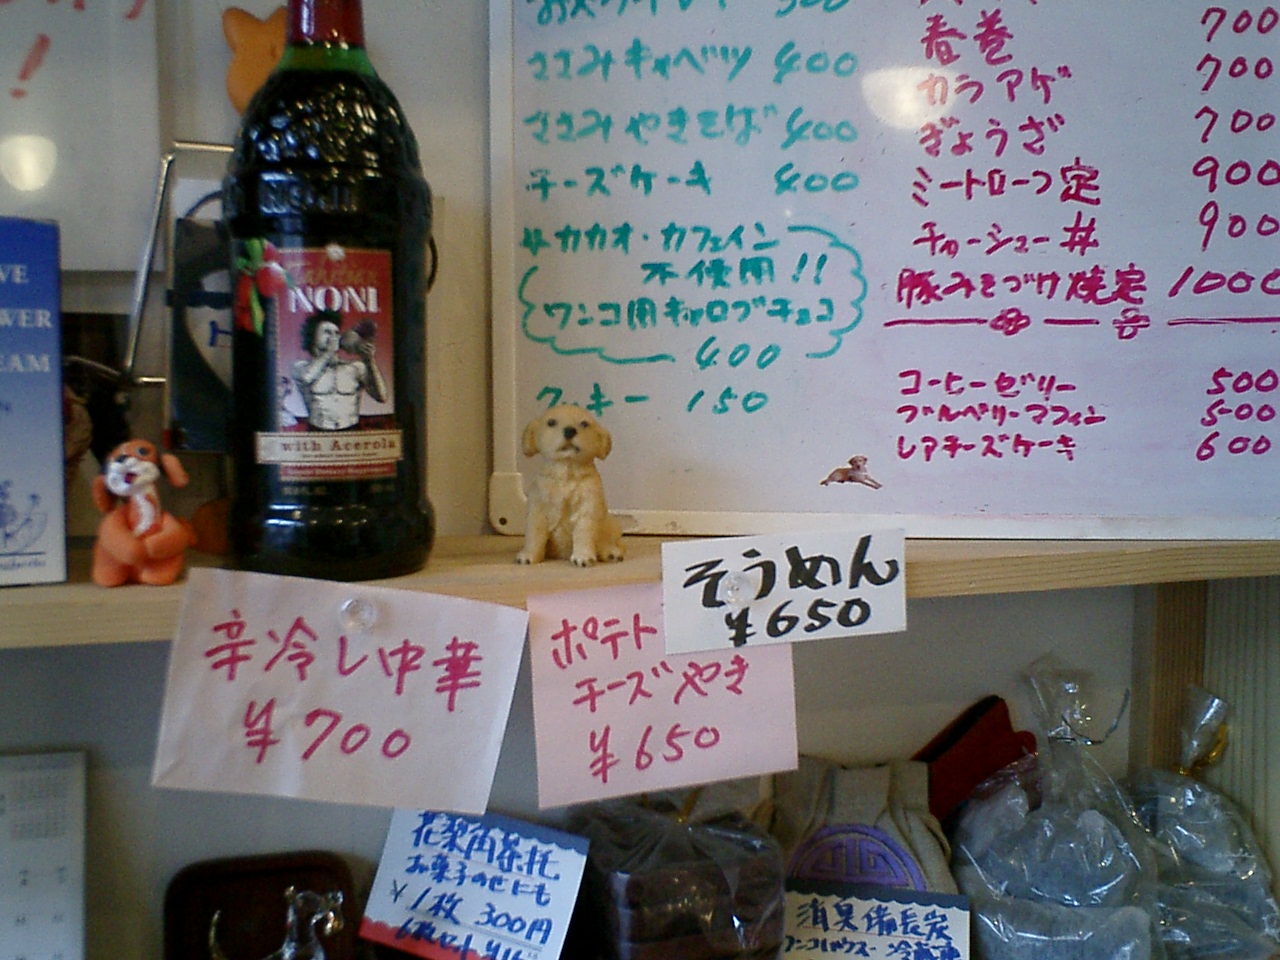 !
ささみキャベツ 400
ささみやきそば 400
チーズケーキ 400
カカオ・カフェイン
不使用!!
ワンコ用キャロブチョコ
400
クッキー 150
春巻 700
カラアゲ 700
ぎょうざ 700
ミートローフ定 900
チャーシュー丼 900
豚みそづけ焼定 1000
コーヒーゼリー 500
ブルーベリーマフィン 500
レアチーズケーキ 600
NONI
Tahitian
NONI
with Acerola
EAM
そうめん
¥650
辛冷し中華
¥700
ポテト
チーズやき
¥650
花梨角茶托
お菓子のせにも
¥1枚 300円
消臭備長炭